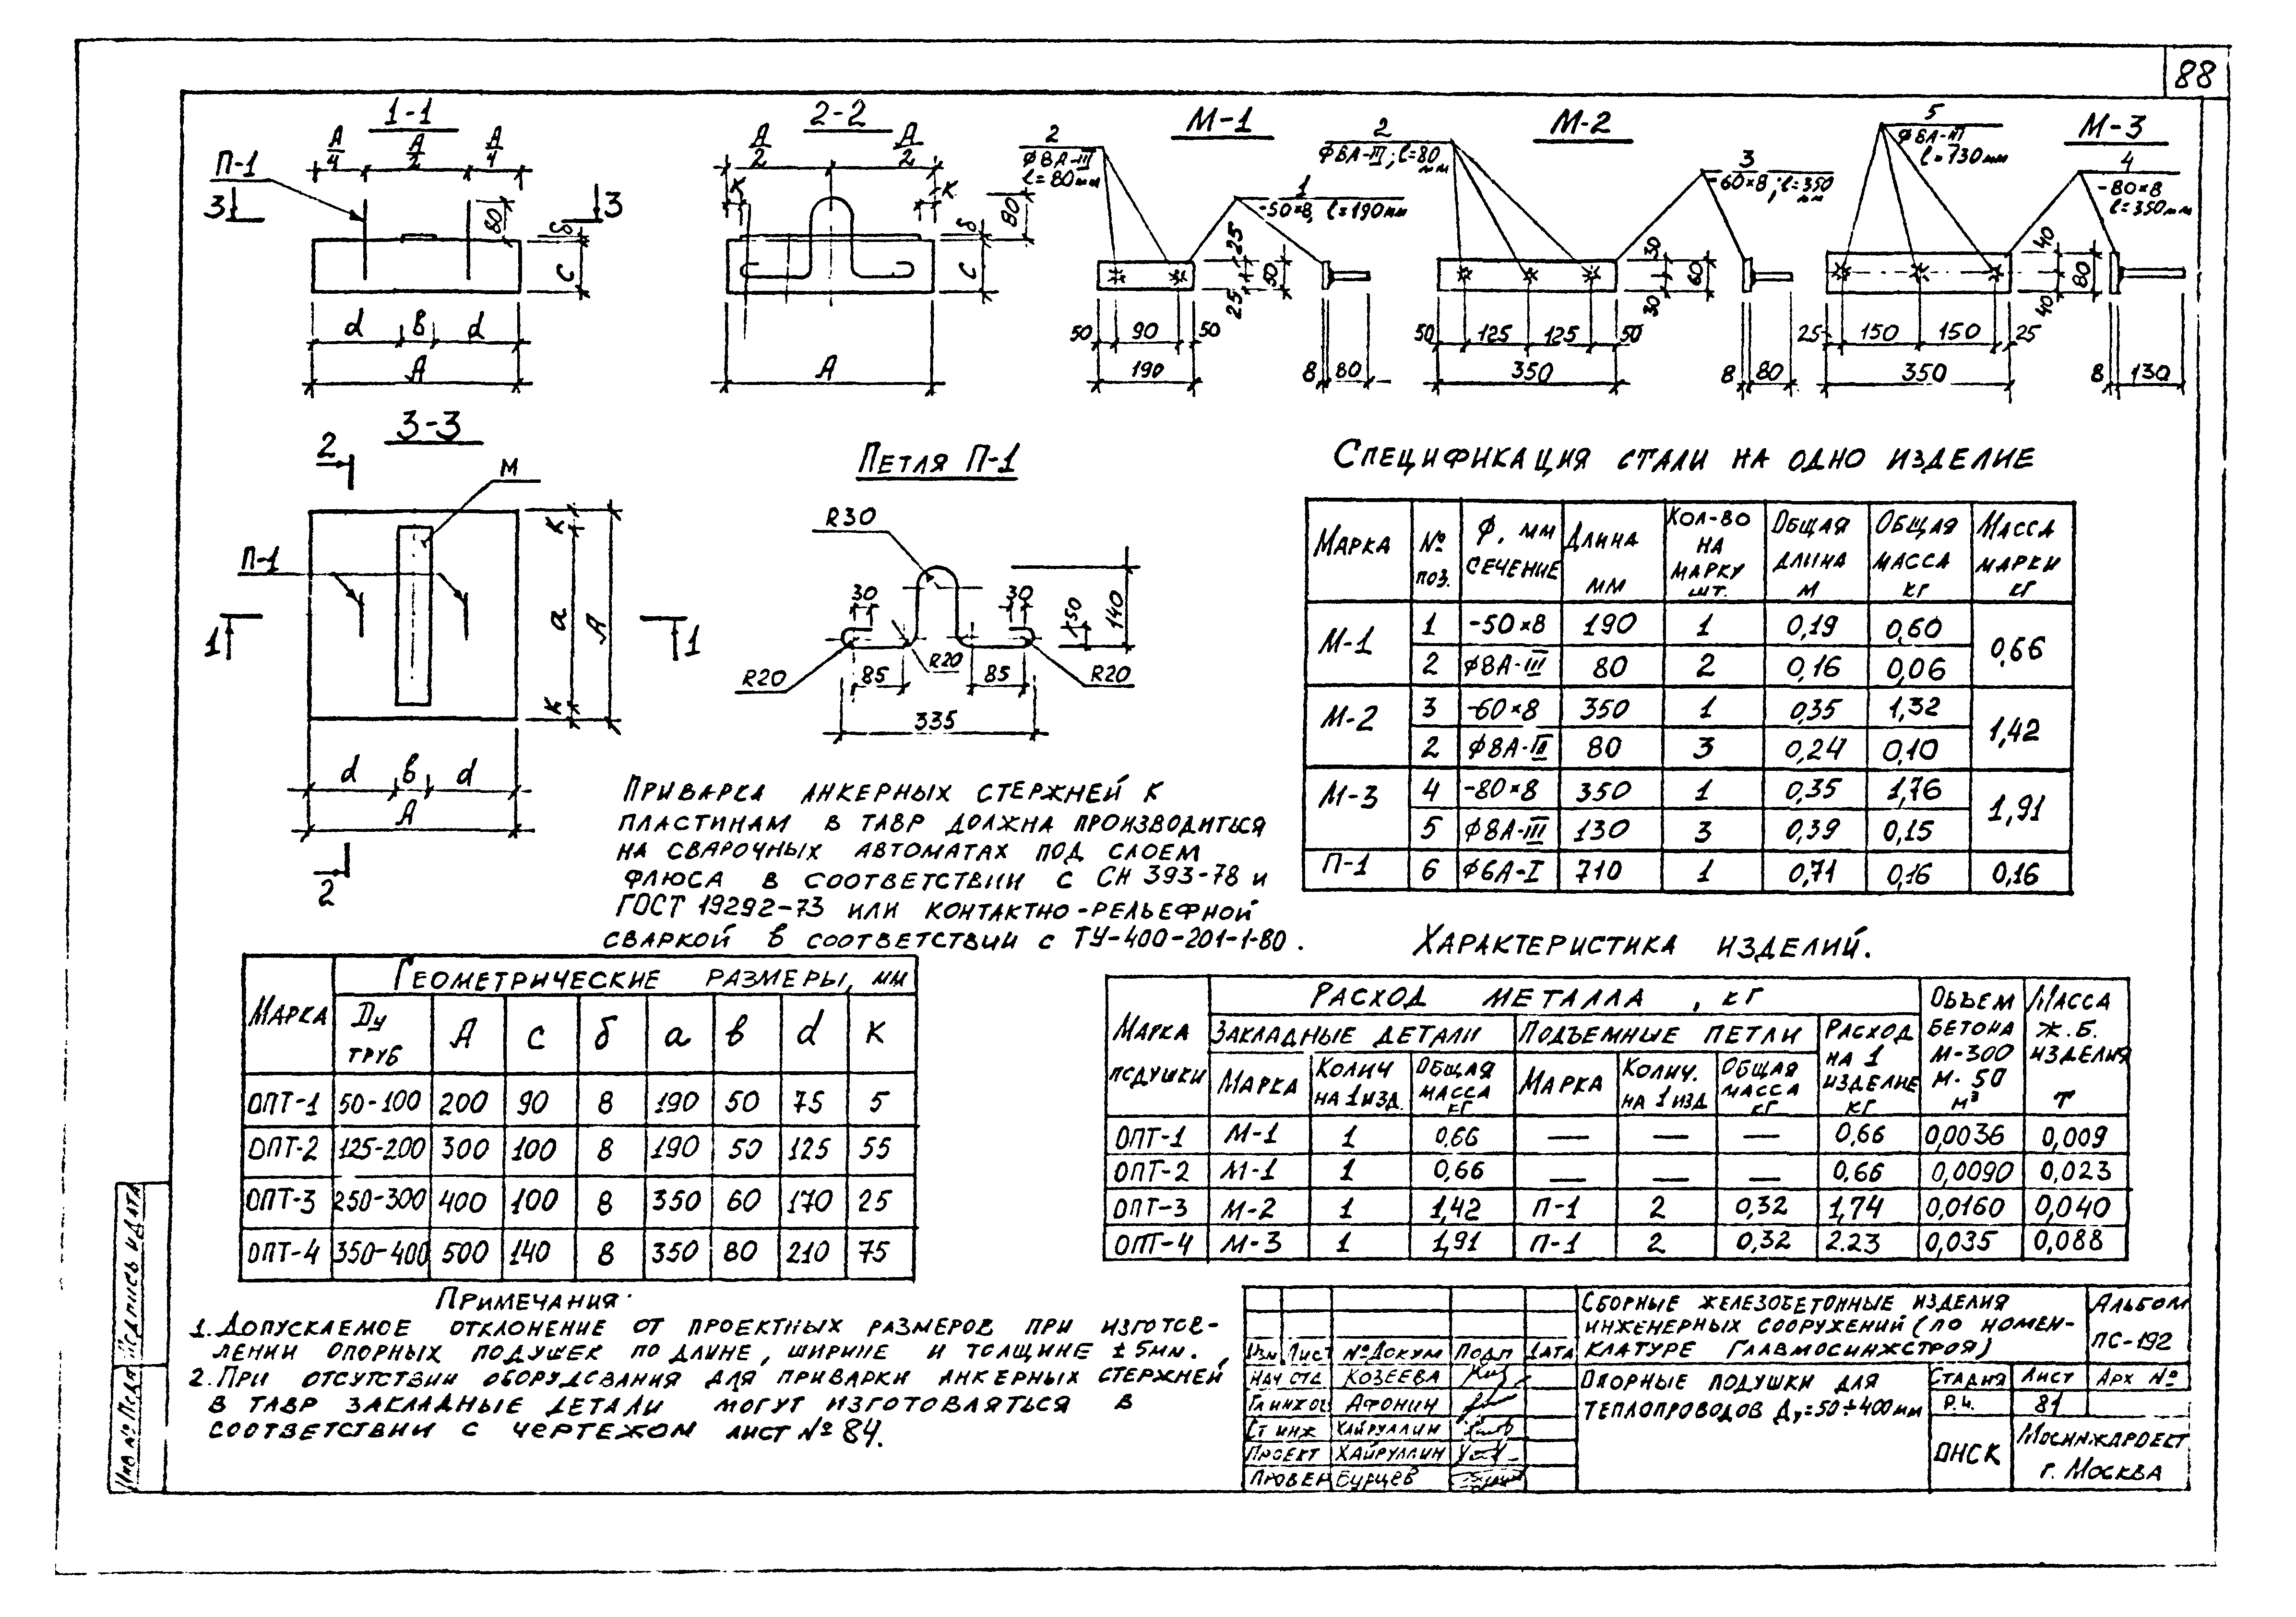 88
1-1
A/4 A/2 A/4
П-1
3 3
80 δ c
d в d
A
2-2
A/2 A/2
К К
80 δ c
A
М-1
2
ϕ8А-III
ℓ=80мм
1
-50×8, ℓ=190мм
25 25 50
50 90 50
190
8 80
М-2
2
ϕ8А-III; ℓ=80
мм
3
-60×8; ℓ=350
мм
30 30 60
50 125 125 50
350
8 80
М-3
5
ϕ8А-III
ℓ=730мм
4
-80×8
ℓ=350мм
40 40 80
25 150 150 25
350
8 130
3-3
2
М
П-1
К а К А
1 1
d в d
A
2
Петля П-1
R30
30 30
50 140
R20 R20 R20
85 85
335
Приварка анкерных стержней к
пластинам в тавр должна производиться
на сварочных автоматах под слоем
флюса в соответствии с СН 393-78 и
ГОСТ 19292-73 или контактно-рельефной
сваркой в соответствии с ТУ-400-201-1-80.
Спецификация стали на одно изделие
Марка | № поз. | Ф, мм сечение | Длина мм | Кол-во на марку шт. | Общая длина м | Общая масса кг | Масса марки кг
М-1 | 1 | -50×8 | 190 | 1 | 0,19 | 0,60 | 0,66
2 | ϕ8А-III | 80 | 2 | 0,16 | 0,06
М-2 | 3 | -60×8 | 350 | 1 | 0,35 | 1,32 | 1,42
2 | ϕ8А-III | 80 | 3 | 0,24 | 0,10
М-3 | 4 | -80×8 | 350 | 1 | 0,35 | 1,76 | 1,91
5 | ϕ8А-III | 130 | 3 | 0,39 | 0,15
П-1 | 6 | ϕ6А-I | 710 | 1 | 0,71 | 0,16 | 0,16
Марка | Геометрические размеры, мм
Dу труб | A | c | б | а | в | d | К
ОПТ-1 | 50-100 | 200 | 90 | 8 | 190 | 50 | 75 | 5
ОПТ-2 | 125-200 | 300 | 100 | 8 | 190 | 50 | 125 | 55
ОПТ-3 | 250-300 | 400 | 100 | 8 | 350 | 60 | 170 | 25
ОПТ-4 | 350-400 | 500 | 140 | 8 | 350 | 80 | 210 | 75
Характеристика изделий.
Марка подушки | Расход металла, кг | Объем бетона М-300 М. 50 м³ | Масса ж.б. изделия т
Закладные детали | Подъемные петли | Расход на 1 изделие кг
Марка | Колич на 1 изд. | Общая масса кг | Марка | Колич. на 1 изд | Общая масса кг
ОПТ-1 | М-1 | 1 | 0,66 | — | — | — | 0,66 | 0,0036 | 0,009
ОПТ-2 | М-1 | 1 | 0,66 | — | — | — | 0,66 | 0,0090 | 0,023
ОПТ-3 | М-2 | 1 | 1,42 | П-1 | 2 | 0,32 | 1,74 | 0,0160 | 0,040
ОПТ-4 | М-3 | 1 | 1,91 | П-1 | 2 | 0,32 | 2.23 | 0,035 | 0,088
Примечания:
1. Допускаемое отклонение от проектных размеров при изготов-
лении опорных подушек по длине, ширине и толщине ±5мм.
2. При отсутствии оборудования для приварки анкерных стержней
в тавр закладные детали могут изготовляться в
соответствии с чертежом лист № 84.
Инв № подл Подпись и дата
Изм Лист № докум Подп Дата
Нач отд Козеева
Гл инж от Афонин
Ст инж Хайруллин
Проект Хайруллин
Провер Бурцев
Сборные железобетонные изделия
инженерных сооружений (по номен-
клатуре Главмосинжстроя)
Альбом
ПС-192
Опорные подушки для
теплопроводов Ду=50÷400мм
Стадия Лист Арх №
Р.ч. 81
ОНСК
Мосинжпроект
г. Москва